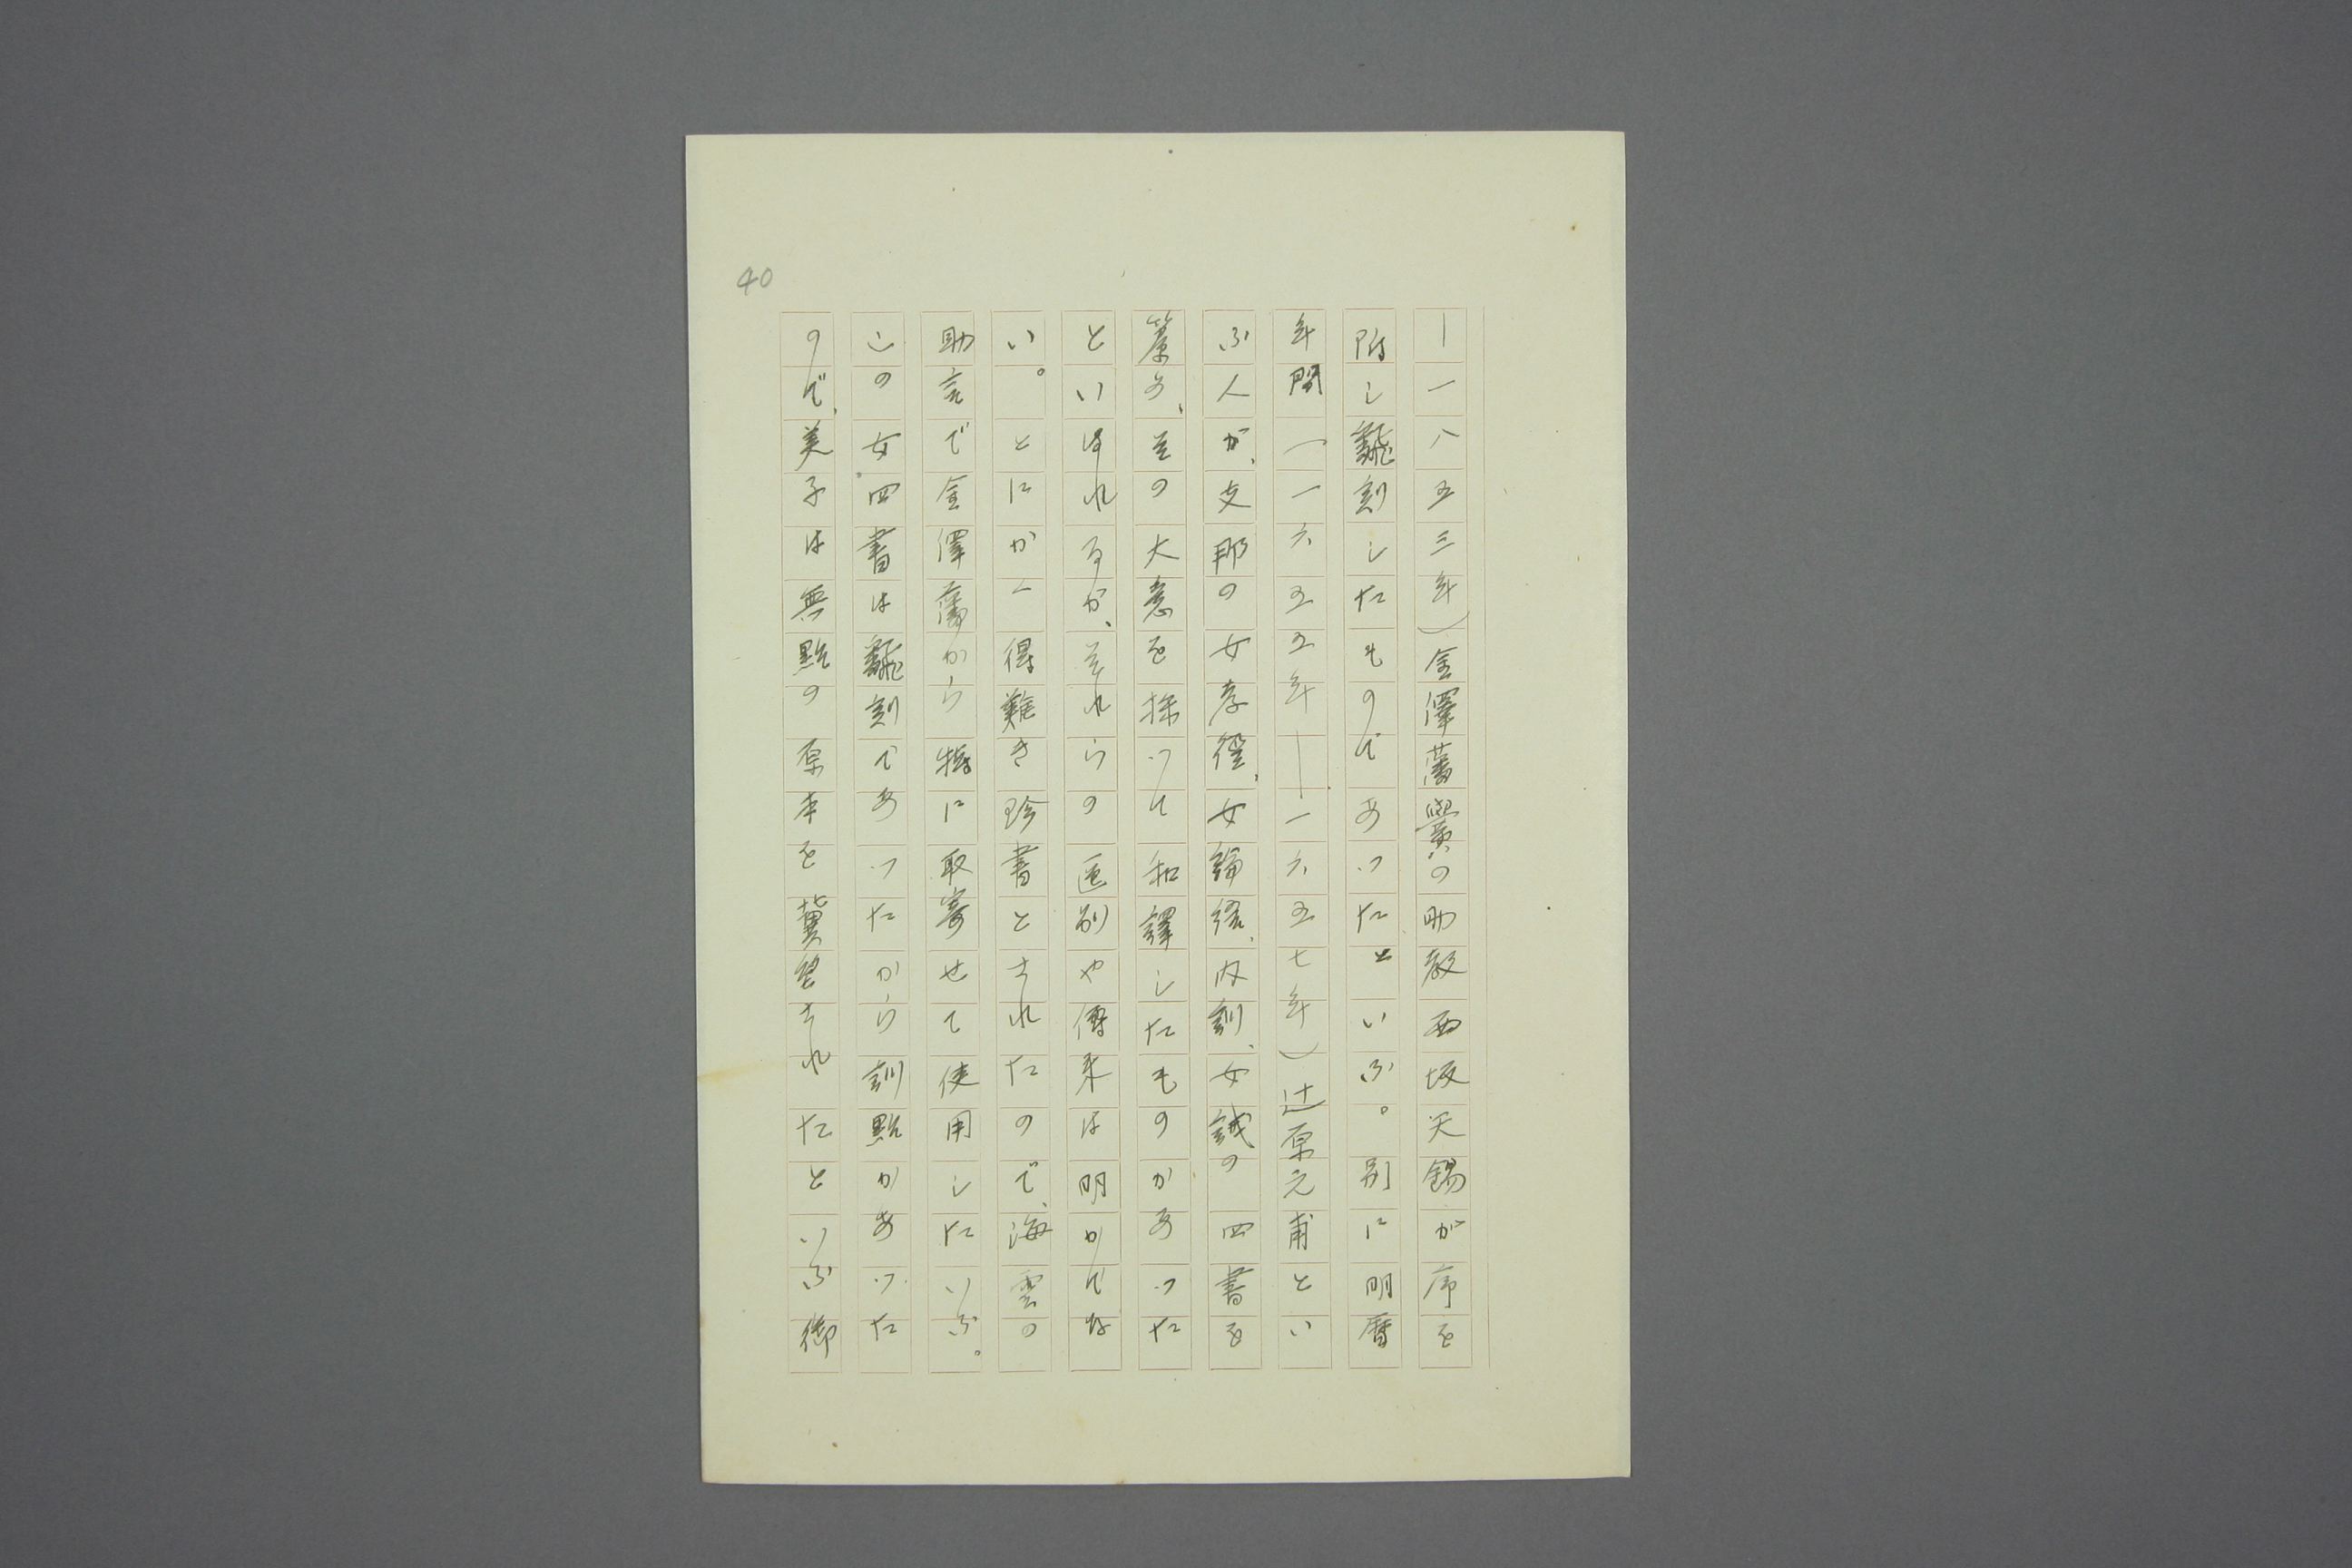 40
―一八五三年）金澤藩黌の助教西坂天錫が序を
附し飜刻したものであつたといふ。別に明暦
年間（一六五五年―一六五七年）辻原元甫とい
ふ人が、支那の女孝經、女論語、内訓、女誡の四書を
纂め、その大意を採つて和譯したものがあつた
といはれるが、それらの區別や傳來は明かでな
い。とにかく得難き珍書とされたので、海雲の
助言で金澤藩から特に取寄せて使用したいふ。
この女四書は飜刻であつたから訓點があつた
ので、美子は無點の原本を冀望されたといふ御